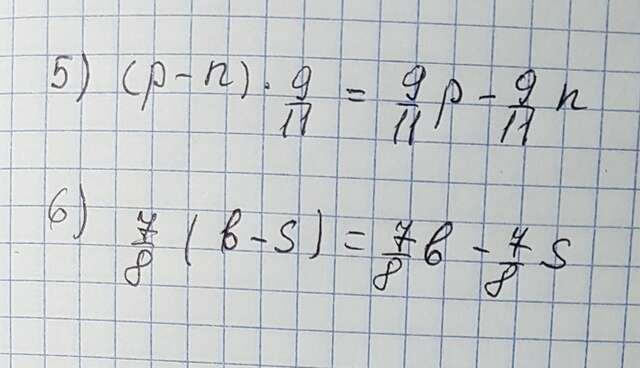 5) (p - n) · 9/11 = 9/11 p - 9/11 n
6) 7/8 (b - s) = 7/8 b - 7/8 s